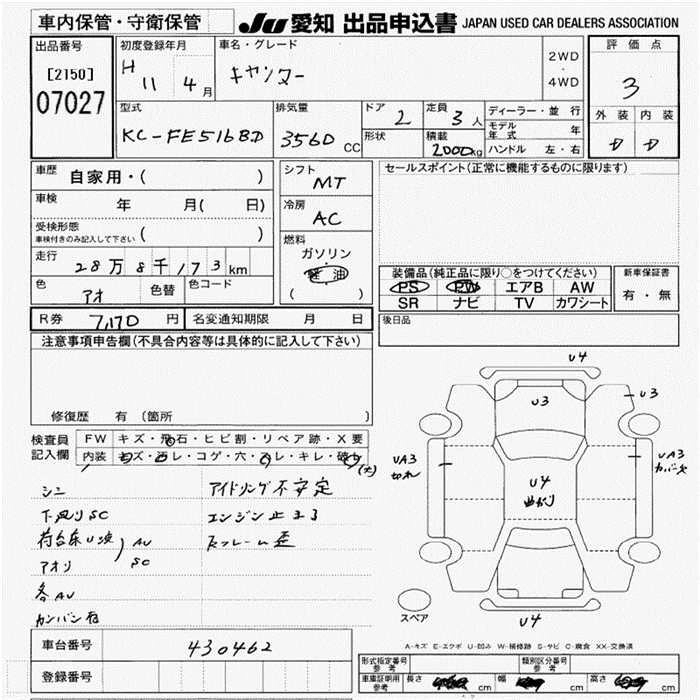 車内保管・守衛保管
JU 愛知 出品申込書 JAPAN USED CAR DEALERS ASSOCIATION
出品番号
[2150]
07027
初度登録年月
H 11 4月
車名・グレード
キャンター
2WD
・
4WD
評価点
3
外装 内装
D D
型式
KC-FE516BD
排気量
3560 CC
ドア 2
形状
定員 3人
積載 2000kg
ディーラー・並行
モデル年式 年
ハンドル 左・右
車歴 自家用・( )
車検 年 月( 日)
受検形態
車検付きのみ記入して下さい ( )
走行 28万8千173km
色 アオ 色替 色コード
シフト MT
冷房 AC
燃料
ガソリン
軽油
( )
セールスポイント(正常に機能するものに限ります)
装備品(純正品に限り○をつけてください)
PS PW エアB AW
SR ナビ TV カワシート
新車保証書
有・無
R券 7,170円 名変通知期限 月 日
後日品
注意事項申告欄(不具合内容等は具体的に記入して下さい)
修復歴 有 (箇所 )
検査員記入欄
FW キズ・飛石・ヒビ割・リペア跡・X要
内装 キズ・汚レ・コゲ・穴・スレ・キレ・破レ(大)
シミ アイドリング不安定
下廻りSC エンジン止まる
AU Rフレーム歪
アオリ SC
各AU
カンバン有
U4
U3
U3
UA3
切れ
UA3
カバー欠
U4
曲がり
U4
スペア
A-キズ E-エクボ U-凹み W-補修跡 S-サビ C-腐食 XX-交換済
車台番号 430462
登録番号
形式指定番号 参考
類別区分番号 参考
車庫証明用 参考 長さ cm 幅 cm 高さ cm